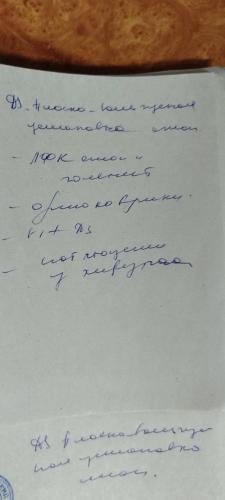 DS. плоско-вальгусная
установка стоп
- ЛФК стоп и
голеней
- ортоковрики.
- наблюдение
у хирурга
DS плосковальгус
ная установка
стоп.